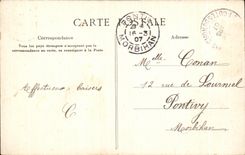 CARTE POSTALE
Correspondance
Tous les pays étrangers n'acceptent pas la
correspondance au verso, se renseigner à la Poste
16-3
07
MORBIHAN
Melle Conan
12 rue de Lourmel
Pontivy
Morbihan
Affectueux baisers
C